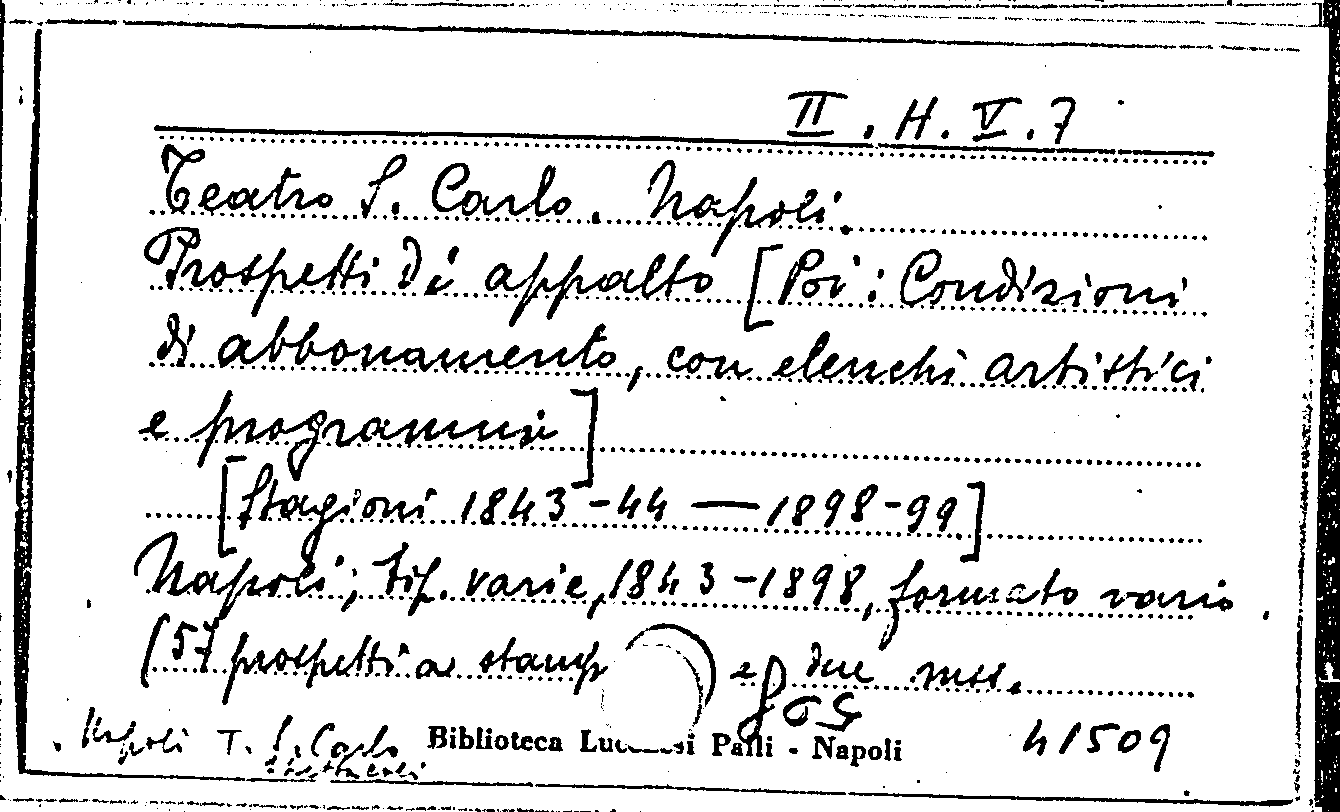 II. H. V. 7
Teatro S. Carlo. Napoli.
Prospetti di appalto [Poi: Condizioni
di abbonamento, con elenchi artistici
e programmi]
[Stagioni 1843-44 — 1898-99]
Napoli, tip. varie, 1843-1898, formato vario.
(57 prospetti a stamp e due mss.
Napoli T. S. Carlo Biblioteca Lucchesi Palli - Napoli 41509